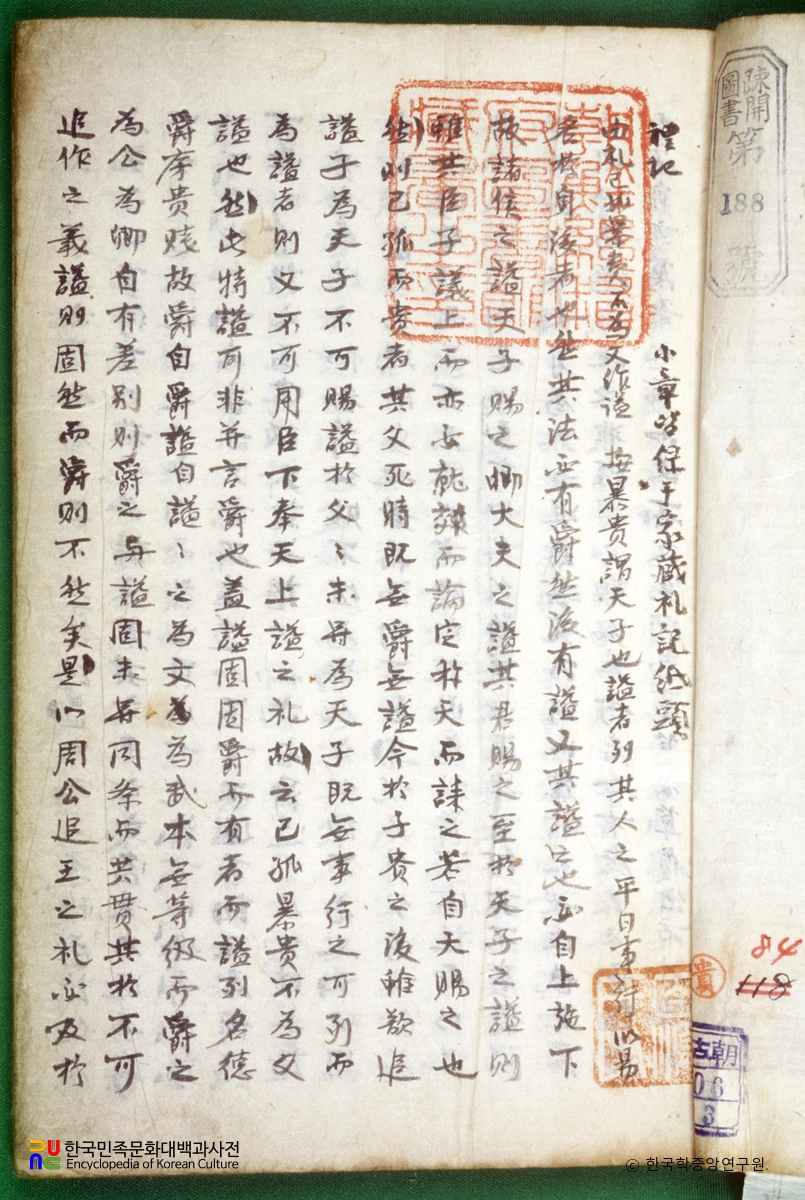 禮記
小章皆保于家藏礼記紙頭
曲礼已孤暴貴不為父作謚 按暴貴謂天子也謚者列其人之平日事行以易
名於身後者也然其法必有爵然後有謚又其謚之也必自上施下
故諸侯之謚天子賜之卿大夫之謚其君賜之至於天子之謚則
雖其臣子議上而亦必就郊而論定称天而誄之若自天賜之也
然則已孤而貴者其父死時既無爵無謚今於子貴之後雖欲追
謚子為天子不可賜謚於父〻未甞為天子既無事行之可列而
為謚者則又不可用臣下奉天上謚之礼故云已孤暴貴不為父
謚也然此特謚可非并言爵也盖謚固因爵而有者而謚列名德
爵序貴賎故爵自爵謚自謚〻之為文為武本無等級而爵之
為公為卿自有差别則爵之与謚固未甞同条而共貫其於不可
追作之義謚則固然而爵則不然矣是以周公追王之礼必及於
疎開
圖書
第
188
號
貴
84
118
朝
古
06
3
한국민족문화대백과사전
Encyclopedia of Korean Culture
© 한국학중앙연구원.